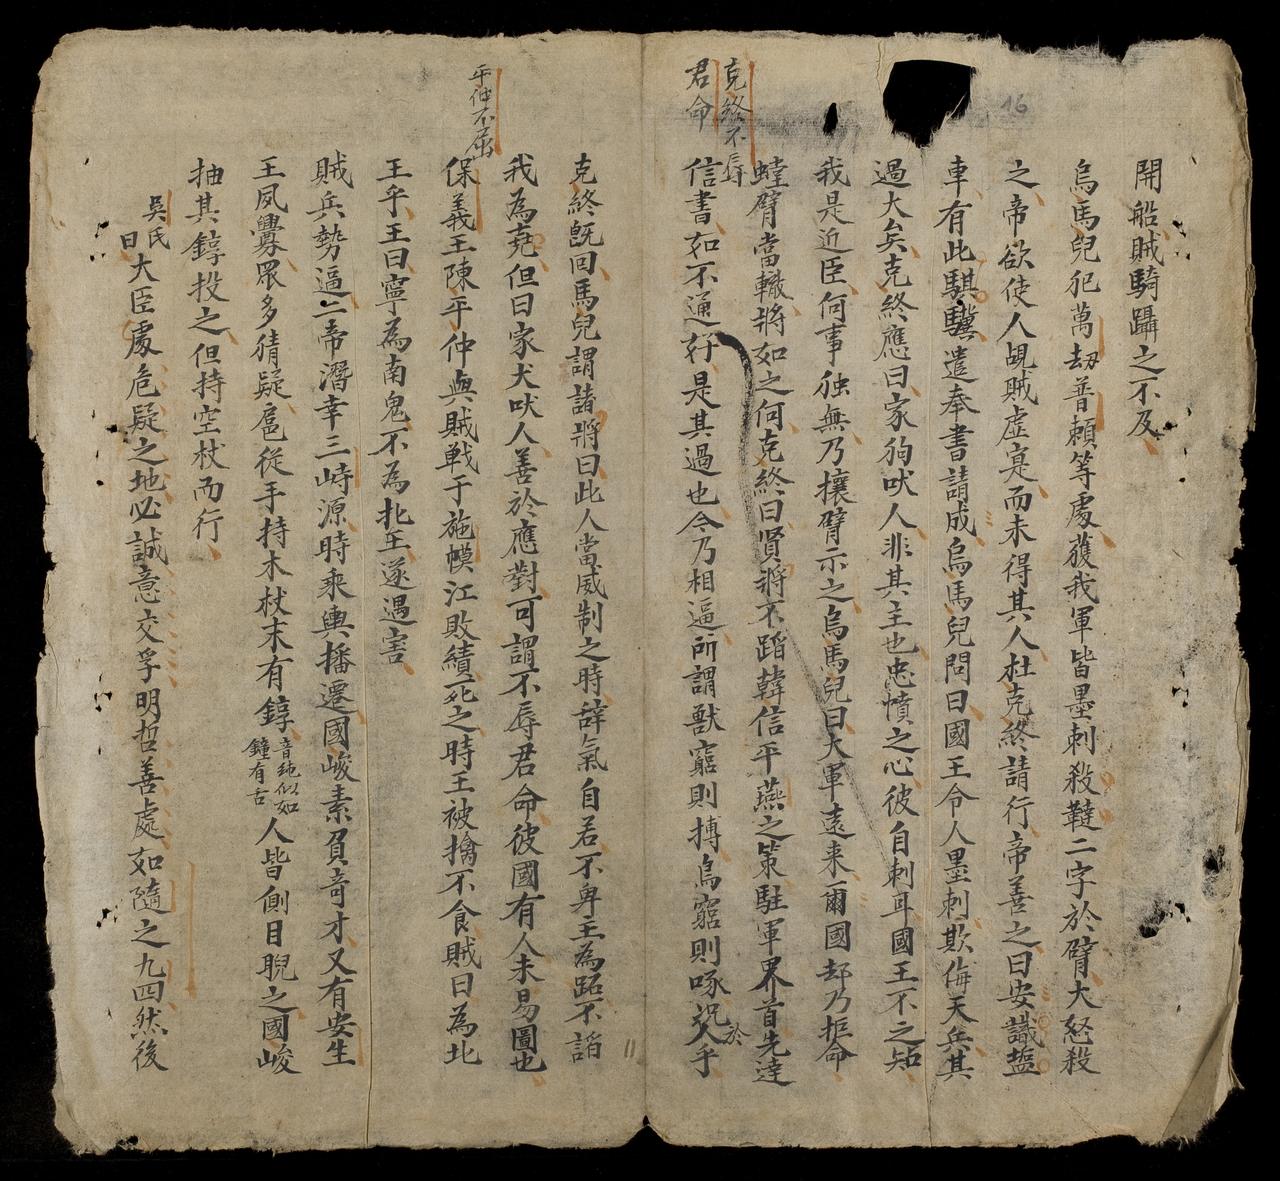 16
開船賊騎躡之不及
烏馬兒犯萬刼普頼等處獲我軍皆墨刺殺韃二字於臂大怒殺
之帝欲使人覘賊虛寔而未得其人杜克終請行帝善之曰安識塩
車有此騏驥遣奉書請成烏馬兒問曰國王令人墨刺欺侮天兵其
過大矣克終應曰家狗吠人非其主也忠憤之心彼自刺耳國王不之知
我是近臣何事独無乃攘臂示之烏馬兒曰大軍遠来爾國却乃拒命
克終不辱
君命
螳臂當轍將如之何克終曰賢將不蹈韓信平燕之策駐軍界首先達
信書如不通好是其過也今乃相逼所謂獸窮則搏鳥窮則啄况於人乎
11
克終既回馬兒謂諸將曰此人當威制之時辞氣自若不卑主為跖不諂
我為堯但曰家犬吠人善於應對可謂不辱君命彼國有人未易圖也
平仲不屈
保義王陳平仲與賊戦于施幙江敗績死之時王被擒不食賊曰為北
王乎王曰寧為南鬼不為北王遂遇害
賊兵勢逼二帝潛幸三峙源時乘輿播遷國峻素負奇才又有安生
王夙釁眾多猜疑扈從手持木杖末有錞音純似如鐘有舌人皆側目睨之國峻
抽其錞投之但持空杖而行
吳氏曰大臣處危疑之地必誠意交孚明哲善處如隨之九四然後